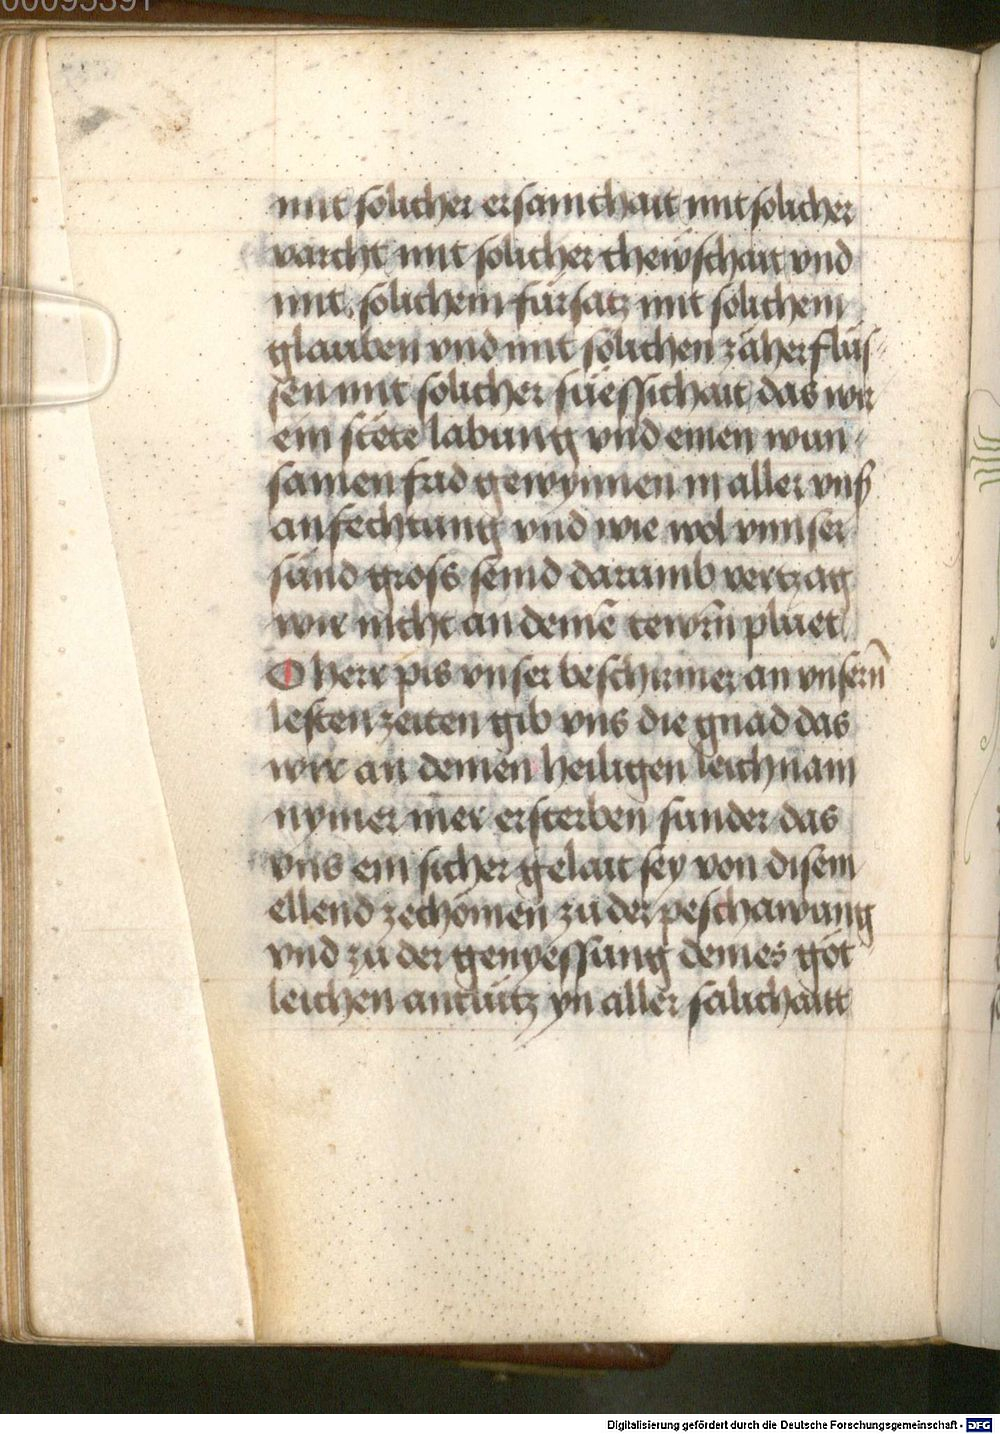 00095391
mit solicher ersamchait mit solicher
varcht mit solicher chewschait vnd
mit solichem fürsatz mit solichem
glauben vnd mit solichen zäherflüs-
sen mit solicher süessichait das wir
ein stete labung vnd einen wun-
samen frid gewynnen in aller vnser
anfechtung vnd wie wol vnnser
sünd gross seind darumb vertzag
wir nicht an deinē tewrn̄ pluet
O herr pis vnser beschirmer an vnsern̄
lesten zeiten gib vns die gnad das
wir an deinen heiligen leichnam
nymer mer ersterben sunder das
vns ein sicher gelait sey von disem
ellend zechömen zu der peschawung
vnd zu der genyessung deines göt
leichen antlütz yn aller sälichaitt
Digitalisierung gefördert durch die Deutsche Forschungsgemeinschaft - DFG